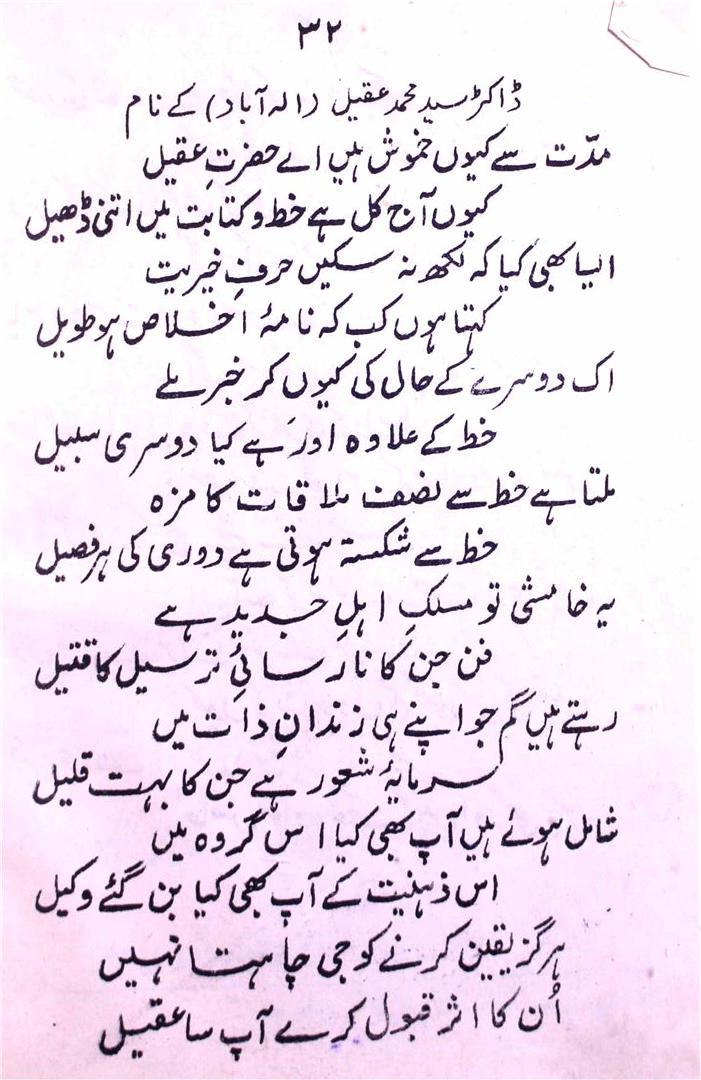 ۳۲
ڈاکٹر سید محمد عقیل (الہ آباد) کے نام
مدّت سے کیوں خموش ہیں اے حضرتِ عقیل
کیوں آج کل ہے خط و کتابت میں اتنی ڈھیل
ایسا بھی کیا کہ لکھ نہ سکیں حرفِ خیریت
کہتا ہوں کب کہ نامۂ اخلاص ہو طویل
اک دوسرے کے حال کی کیوں کر خبر ملے
خط کے علاوہ اور ہے کیا دوسری سبیل
ملتا ہے خط سے نصف ملاقات کا مزہ
خط سے شکستہ ہوتی ہے دوری کی ہر فصیل
یہ خامشی تو مسلکِ اہلِ جدید ہے
فن جن کا نارسائیِ ترسیل کا قتیل
رہتے ہیں گم جو اپنے ہی زندانِ ذات میں
سرمایۂ شعور ہے جن کا بہت قلیل
شامل ہوئے ہیں آپ بھی کیا اس گروہ میں
اس ذہنیت کے آپ بھی کیا بن گئے وکیل
ہرگز یقین کرنے کو جی چاہتا نہیں
اُن کا اثر قبول کرے آپ سا عقیل